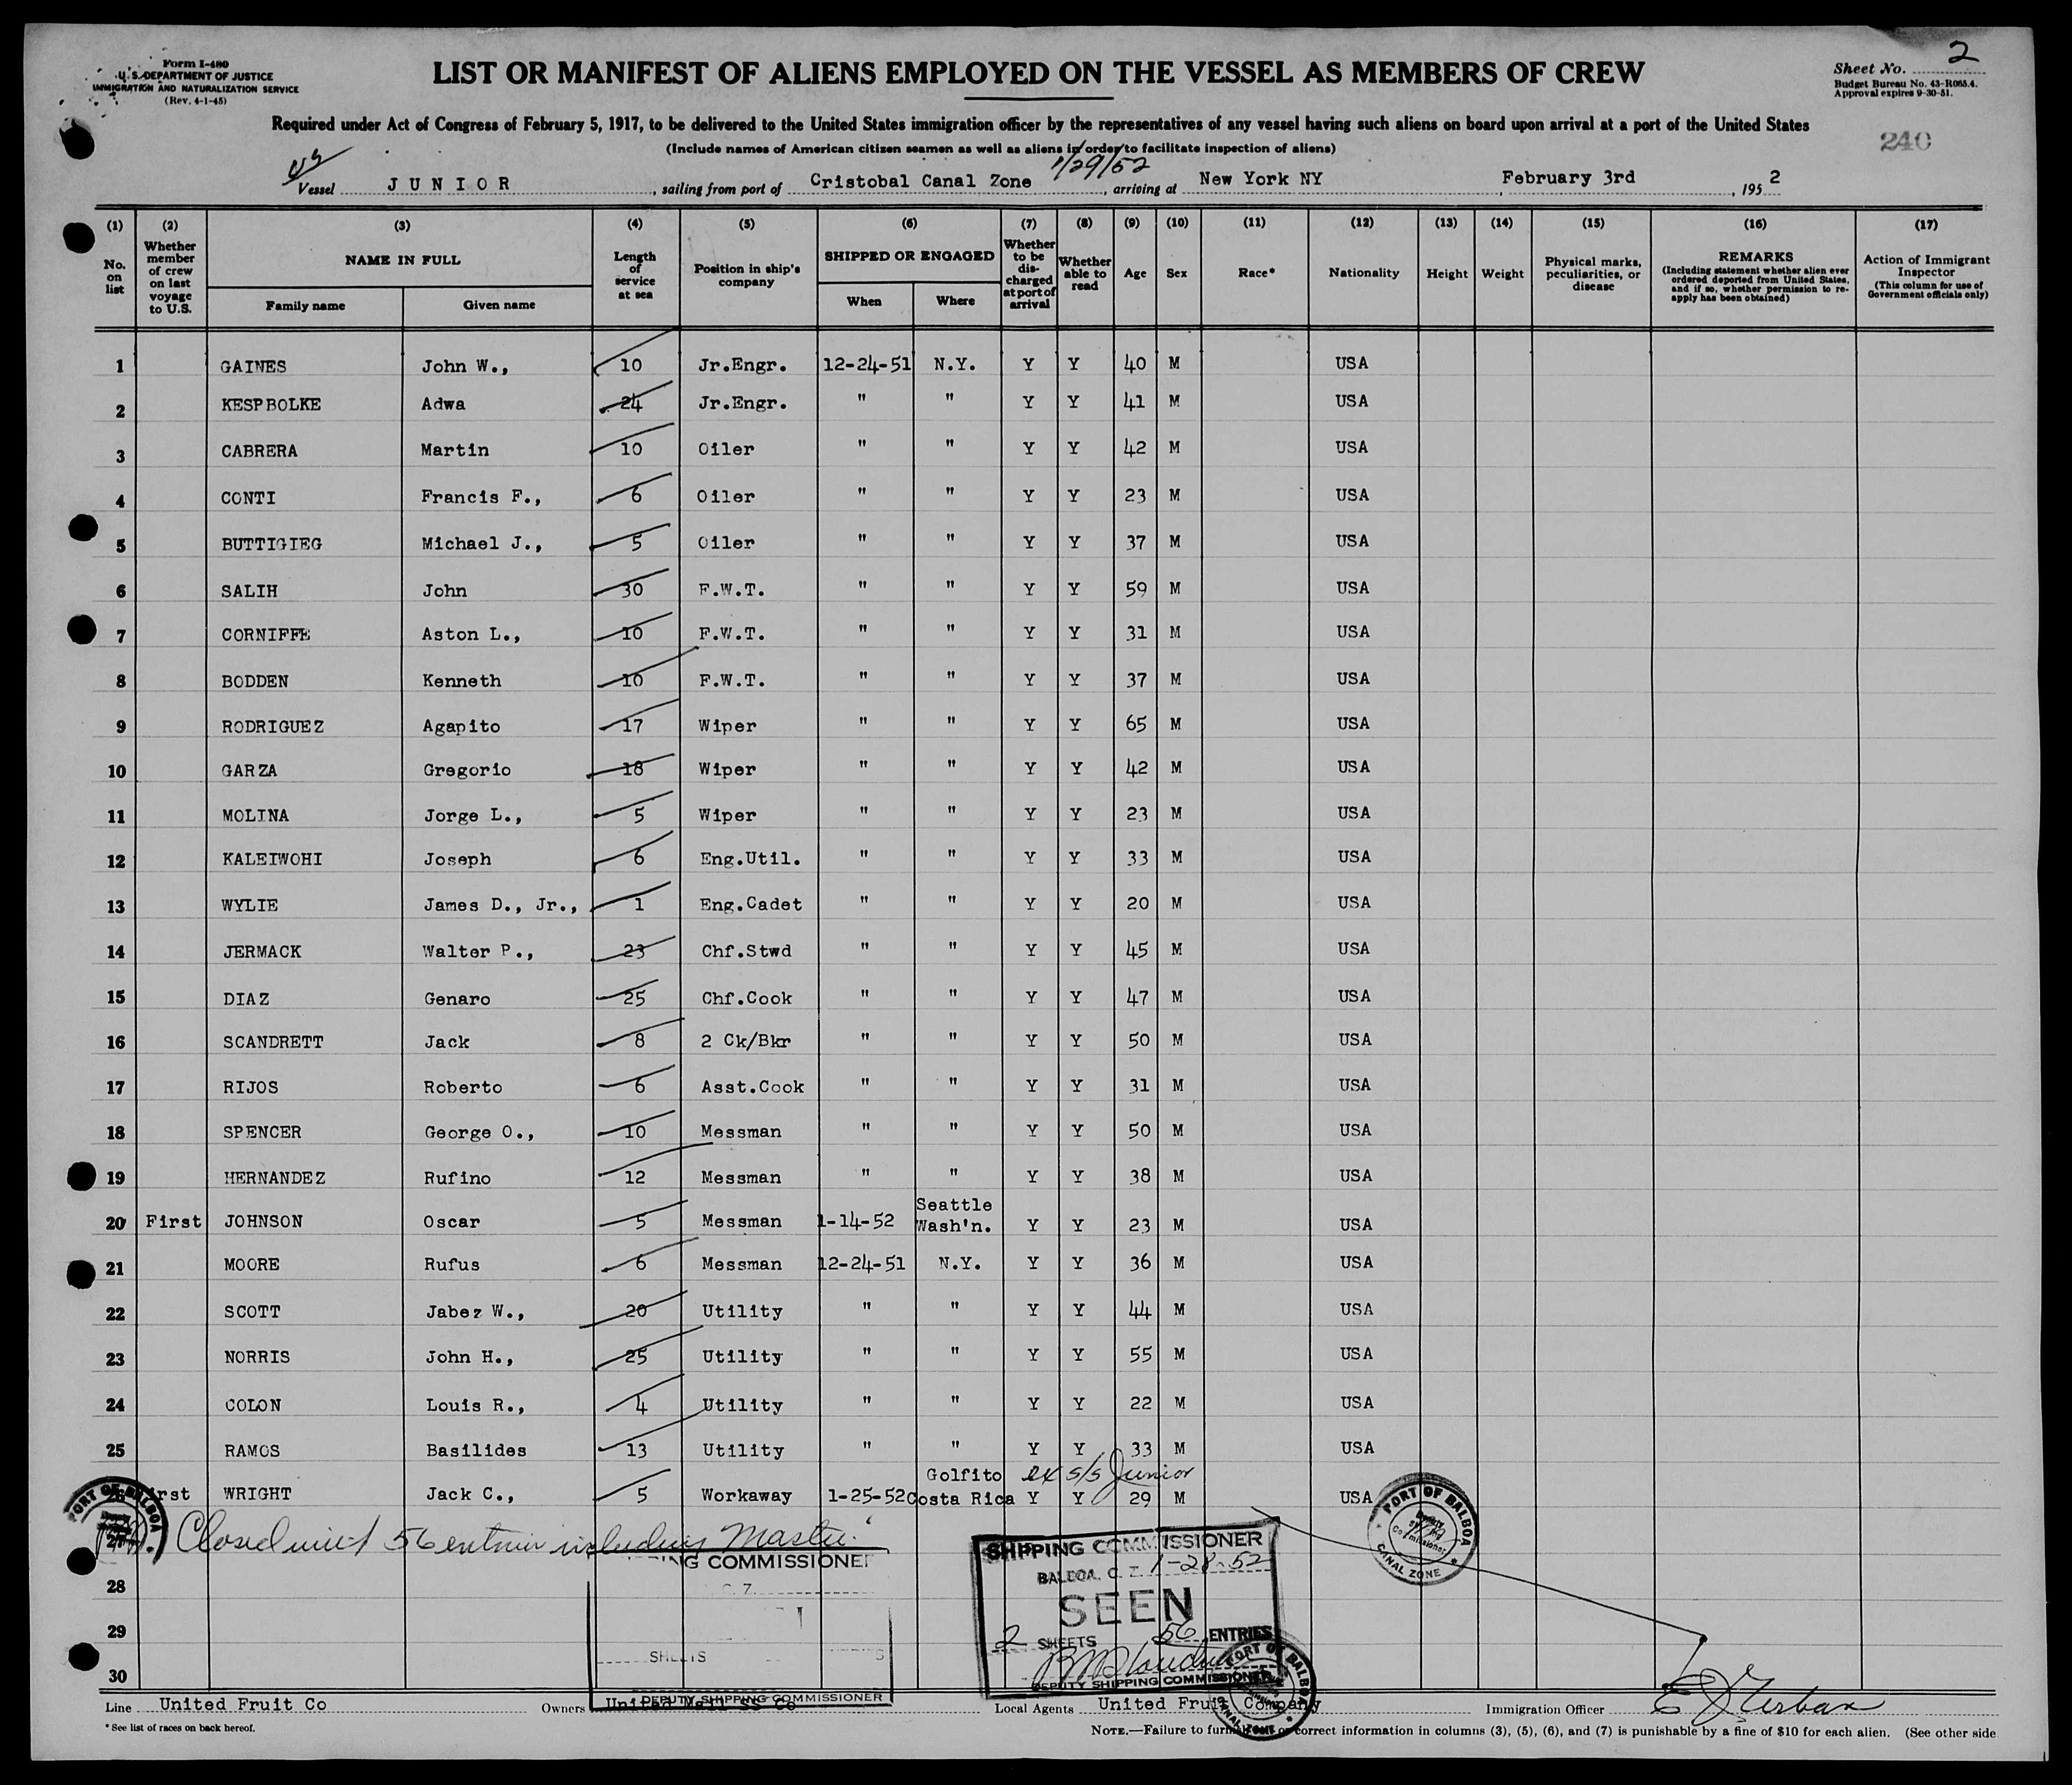 Form I-480
U. S. DEPARTMENT OF JUSTICE
IMMIGRATION AND NATURALIZATION SERVICE
(Rev. 4-1-45)
LIST OR MANIFEST OF ALIENS EMPLOYED ON THE VESSEL AS MEMBERS OF CREW
Sheet No. 2
Budget Bureau No. 43-R065.4.
Approval expires 9-30-51.
Required under Act of Congress of February 5, 1917, to be delivered to the United States immigration officer by the representatives of any vessel having such aliens on board upon arrival at a port of the United States
(Include names of American citizen seamen as well as aliens in order to facilitate inspection of aliens)
240
US
1/29/52
Vessel JUNIOR, sailing from port of Cristobal Canal Zone, arriving at New York NY, February 3rd, 1952
(1) (2) (3) (4) (5) (6) (7) (8) (9) (10) (11) (12) (13) (14) (15) (16) (17)
No. on list
Whether member of crew on last voyage to U.S.
NAME IN FULL
Family name Given name
Length of service at sea
Position in ship's company
SHIPPED OR ENGAGED
When Where
Whether to be discharged at port of arrival
Whether able to read
Age
Sex
Race*
Nationality
Height
Weight
Physical marks, peculiarities, or disease
REMARKS
(Including statement whether alien ever ordered deported from United States, and if so, whether permission to reapply has been obtained)
Action of Immigrant Inspector
(This column for use of Government officials only)
1 GAINES John W., 10 Jr.Engr. 12-24-51 N.Y. Y Y 40 M USA
2 KESPBOLKE Adwa 24 Jr.Engr. " " Y Y 41 M USA
3 CABRERA Martin 10 Oiler " " Y Y 42 M USA
4 CONTI Francis F., 6 Oiler " " Y Y 23 M USA
5 BUTTIGIEG Michael J., 5 Oiler " " Y Y 37 M USA
6 SALIH John 30 F.W.T. " " Y Y 59 M USA
7 CORNIFFE Aston L., 10 F.W.T. " " Y Y 31 M USA
8 BODDEN Kenneth 10 F.W.T. " " Y Y 37 M USA
9 RODRIGUEZ Agapito 17 Wiper " " Y Y 65 M USA
10 GARZA Gregorio 18 Wiper " " Y Y 42 M USA
11 MOLINA Jorge L., 5 Wiper " " Y Y 23 M USA
12 KALEIWOHI Joseph 6 Eng.Util. " " Y Y 33 M USA
13 WYLIE James D., Jr., 1 Eng.Cadet " " Y Y 20 M USA
14 JERMACK Walter P., 23 Chf.Stwd " " Y Y 45 M USA
15 DIAZ Genaro 25 Chf.Cook " " Y Y 47 M USA
16 SCANDRETT Jack 8 2 Ck/Bkr " " Y Y 50 M USA
17 RIJOS Roberto 6 Asst.Cook " " Y Y 31 M USA
18 SPENCER George O., 10 Messman " " Y Y 50 M USA
19 HERNANDEZ Rufino 12 Messman " " Y Y 38 M USA
20 First JOHNSON Oscar 5 Messman 1-14-52 Seattle Wash'n. Y Y 23 M USA
21 MOORE Rufus 6 Messman 12-24-51 N.Y. Y Y 36 M USA
22 SCOTT Jabez W., 20 Utility " " Y Y 44 M USA
23 NORRIS John H., 25 Utility " " Y Y 55 M USA
24 COLON Louis R., 4 Utility " " Y Y 22 M USA
25 RAMOS Basilides 13 Utility " " Y Y 33 M USA
ex s/s Junior
26 First WRIGHT Jack C., 5 Workaway 1-25-52 Golfito Costa Rica Y Y 29 M USA
PORT OF BALBOA
Closed with 56 entries including Master
PORT OF BALBOA
CANAL ZONE
NG COMMISSIONER
C. Z.
SHEETS
DEPUTY SHIPPING COMMISSIONER
SHIPPING COMMISSIONER
BALBOA, C. Z. 1-28-52
SEEN
2 SHEETS 56 ENTRIES
DEPUTY SHIPPING COMMISSIONER
PORT OF BALBOA
CANAL ZONE
28
29
30
Line United Fruit Co Owners United Mail SS Co Local Agents United Fruit Company Immigration Officer E J Urban
* See list of races on back hereof.
NOTE.—Failure to furnish or correct information in columns (3), (5), (6), and (7) is punishable by a fine of $10 for each alien. (See other side